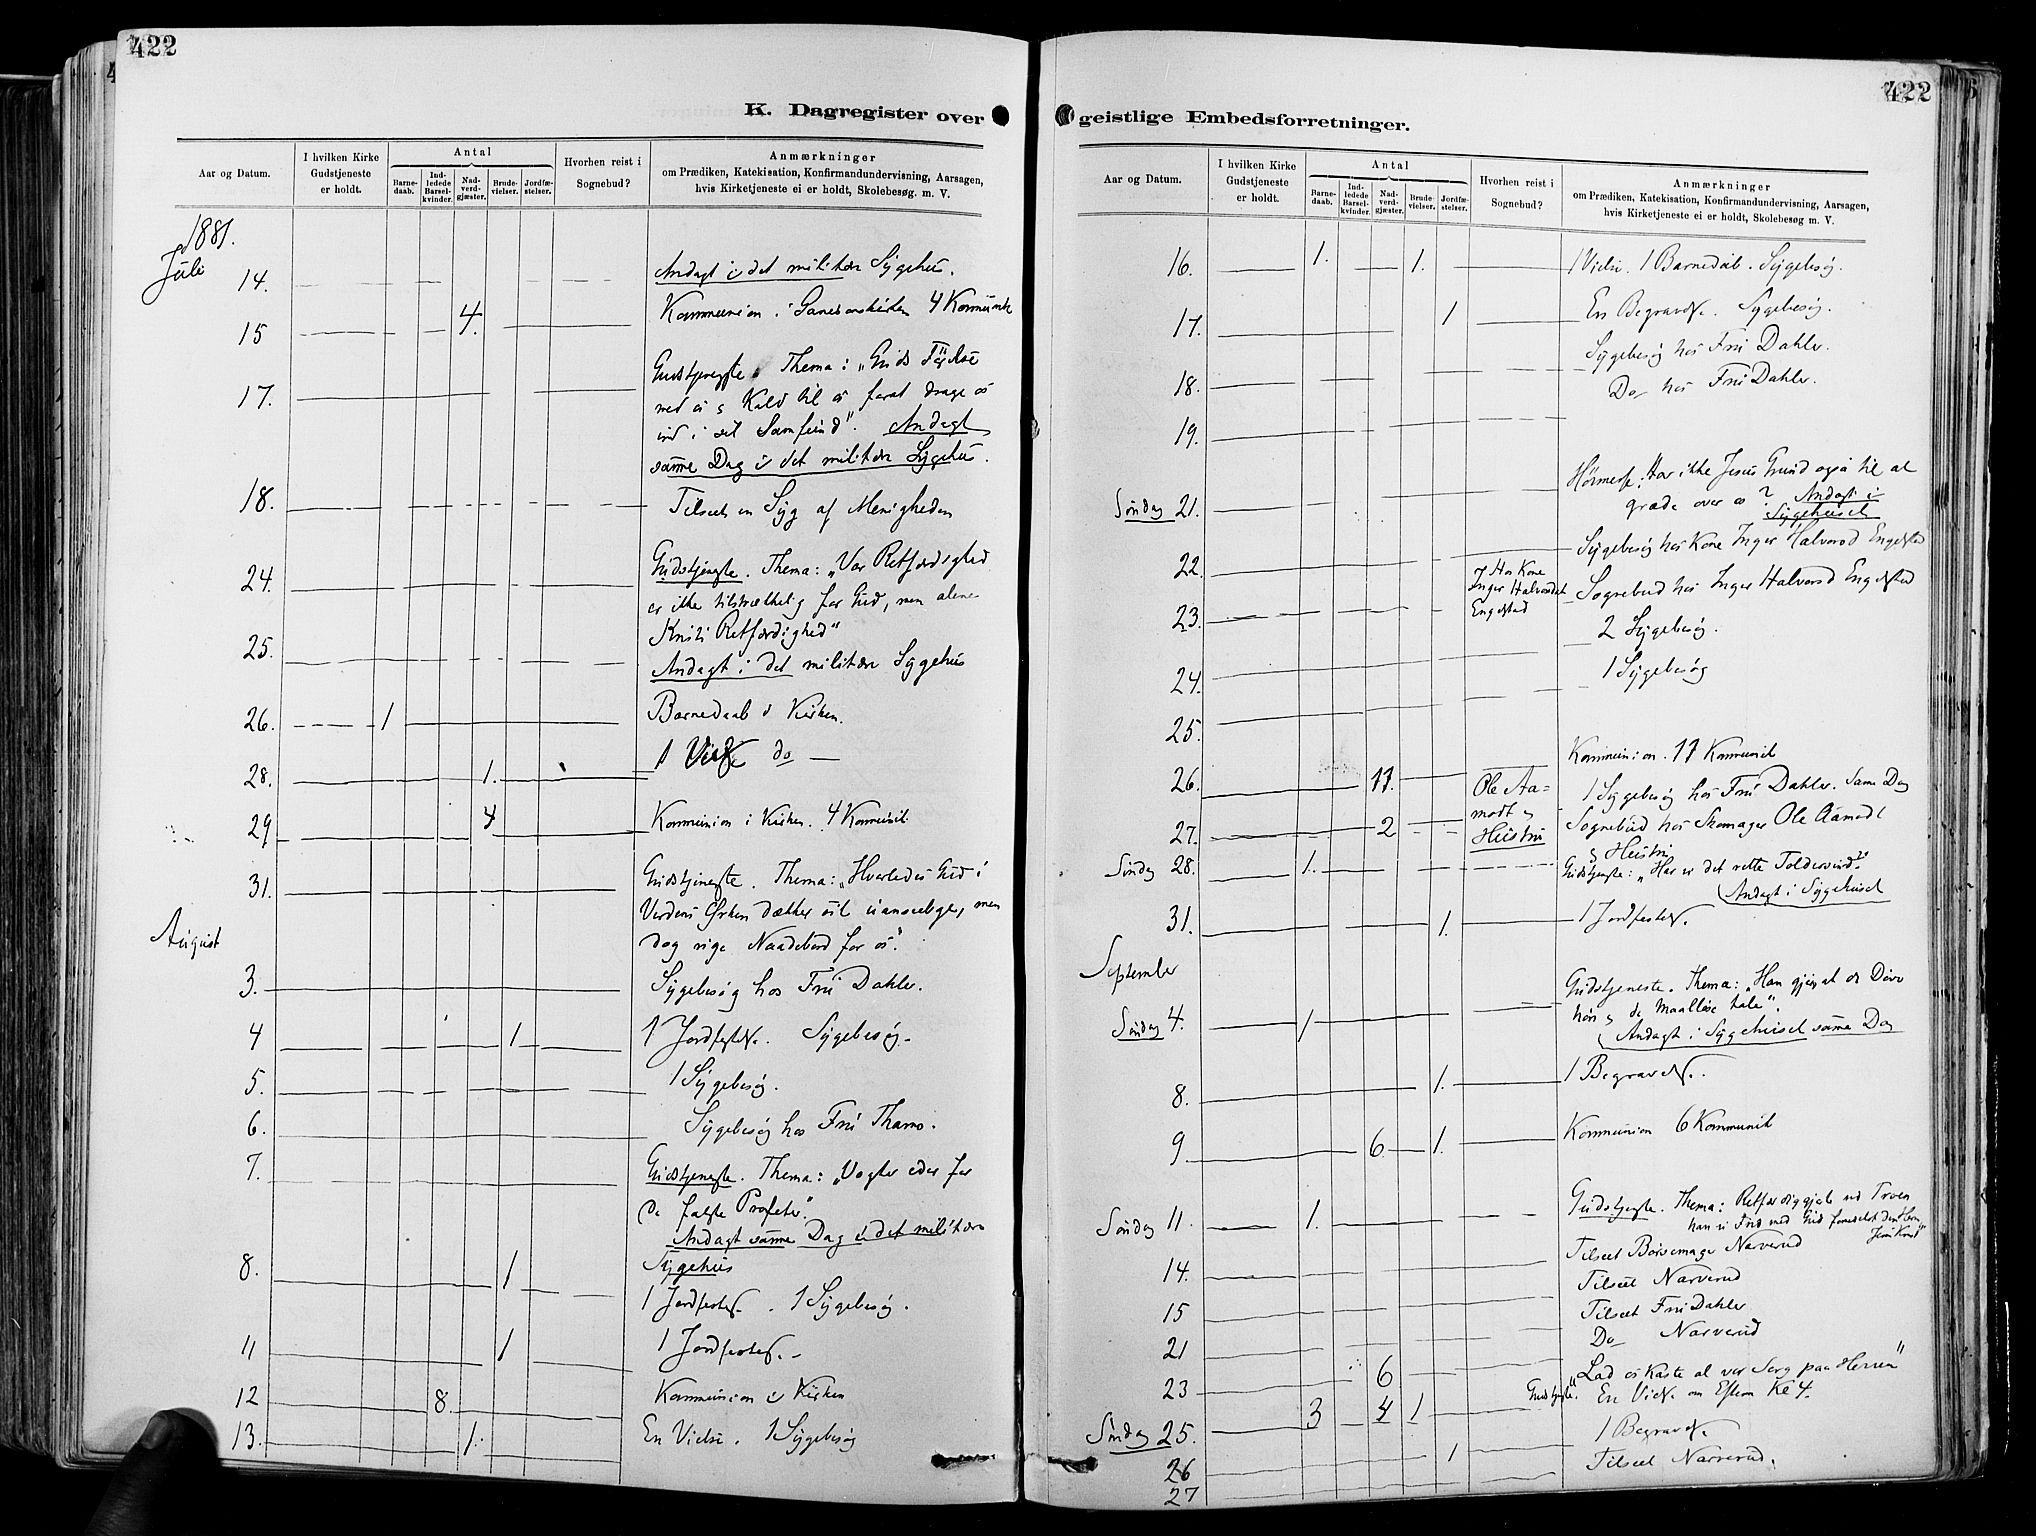 422
K. Dagregister over
Aar og Datum.
I hvilken Kirke Gudstjeneste er holdt.
Antal
Barne-daab.
Ind-ledede Barsel-kvinder.
Nad-verd-gjæster.
Brude-vielser.
Jordfæ-stelser.
Hvorhen reist i Sognebud?
Anmærkninger
om Prædiken, Katekisation, Konfirmandundervisning, Aarsagen,
hvis Kirketjeneste ei er holdt, Skolebesøg m. V.
1881.
Juli
14. Andagt i det militære Sygehus.
15 4. Kommunion i 4 Kommunik
17. Gudstjeneste. Thema: „Guds
Kald til os forat drage os
ind i sit Samfund". Andagt
samme Dag i det militære Sygehus.
18. Tilseet en Syg af Menigheden
24. Gudstjeneste. Thema: „Vor Retfærdighed
er ikke tilstrækkelig for Gud, men alene
Kristi Retfærdighed"
25. Andagt i det militære Sygehus
26. 1 Barnedaab i Kirken.
28. 1. 1 Vielse do
29 4 Kommunion i Kirken. 4 Kommunik
31. Gudstjeneste. Thema: „Hvorledes Gud i
Verdens Ørken dækker sit uanseelige, men
dog rige Naadebord for os".
August
3. Sygebesøg hos Fru Dahler.
4 1 1 Jordfæstelse. Sygebesøg.
5. 1 Sygebesøg.
6. Sygebesøg hos Fru Thams.
7. Gudstjeneste. Thema: „Vogter eder for
de falske Profeter".
Andagt samme Dag i det militære
Sygehus
8. 1 1 Jordfestelse. 1 Sygebesøg.
11 1 1 Jordfestelse.
12 8. Kommunion i Kirken
13. 1. En Vielse. 1 Sygebesøg
422
geistlige Embedsforretninger.
Aar og Datum.
I hvilken Kirke Gudstjeneste er holdt.
Antal
Barne-daab.
Ind-ledede Barsel-kvinder.
Nad-verd-gjæster.
Brude-vielser.
Jordfæ-stelser.
Hvorhen reist i Sognebud?
Anmærkninger
om Prædiken, Katekisation, Konfirmandundervisning, Aarsagen,
hvis Kirketjeneste ei er holdt, Skolebesøg m. V.
16. 1. 1. 1 Vielse. 1 Barnedaab. Sygebesøg.
17. 1 En Begravelse. Sygebesøg.
18. Sygebesøg hos Fru Dahler.
19. Do hos Fru Dahler.
Søndag 21. Har ikke Jesus Grund også til at
græde over os? Andagt i
Sygehuset
22. Sygebesøg hos Kone Inger Halvorsd Engelstad
23. Hos Kone
Inger Halvorsdat
Engelstad
Sognebud hos Inger Halvorsd Engelstad
2 Sygebesøg.
24. 1 Sygebesøg
25.
26. 17. Kommunion. 17 Kommunik
27. 2 Ole Aa=
modt og
Hustru
1 Sygebesøg hos Fru Dahler. Samme Dag
Sognebud hos Skomager Ole Aamodt
og Hustru
Søndag 28. 1. Gudstjeneste: „Har vi det rette Toldersind?"
Andagt i Sygehuset
31. 1. 1 Jordfestelse.
September
Søndag 4. 1 Gudstjeneste. Thema: „Han gjør at de Døve
høre og de Maalløse tale"
Andagt i Sygehuset samme Dag
8. 1. 1 Begravelse.
9 6 1. Kommunion 6 Kommunik
Søndag 11. 1. Gudstjeneste. Thema: Retfærdiggjorte ved Troen
have vi Fred med Gud formedelst den Herre
Jesu Krist"
14. Tilseet Bøssemager Narverud
15 Tilseet Narverud
21 Tilseet Fru Dahler
Do Narverud
23 6
Søndag 25. 3 4 1 Gudstjeneste. „Lad os kaste al vor Sorg paa Herren"
En Vielse om Efterm Kl 4.
26 1 1 Begravelse.
27 Tilseet Narverud.